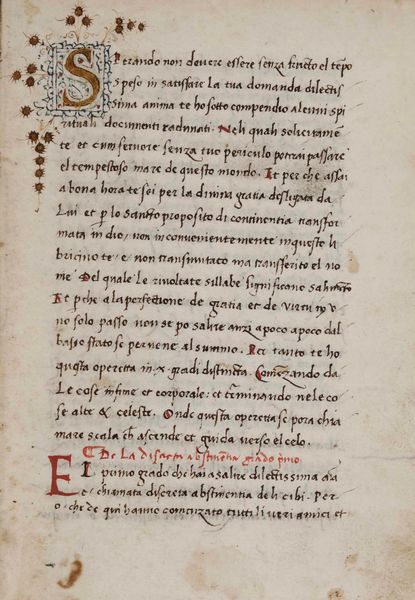 Sperando non dovere essere senza fructo el tempo
speso in satisfare la tua domanda dilectis
sima anima te ho sotto compendio alcuni spi
rituali documenti radunati. Neli quali solicitame
te et cum fervore senza tuo periculo potrai passare
el tempestoso mare de questo mondo. Et per che assai
a bona hora te sei per la divina gratia desligata da
Lui et p lo sancto proposito di continentia transfor
mata in dio, non inconvenientemente in questo li
bricino te, e, non transmutato ma transferito el no
me Del quale le rivoltate sillabe significano
Et p che a la perfectione de gratia et de virtu in v
no solo passo non se po salire anzi a poco a poco dal
basso stato se perviene al summo. Per tanto te ho
questa operetta in .x. gradi distincta. Comenzando da
Le cose infime et corporale: et terminando nele co
se alte & celeste. Onde questa operetta se pora chia
mare scala ch ascende et guida verso el celo.
De la discreta abstinentia grado primo
EL primo grado che hai a salire dilectissima
e, chiamata discreta abstinentia deli cibi. Per
o, che de qui hanno comenzato tutti li veri amici et